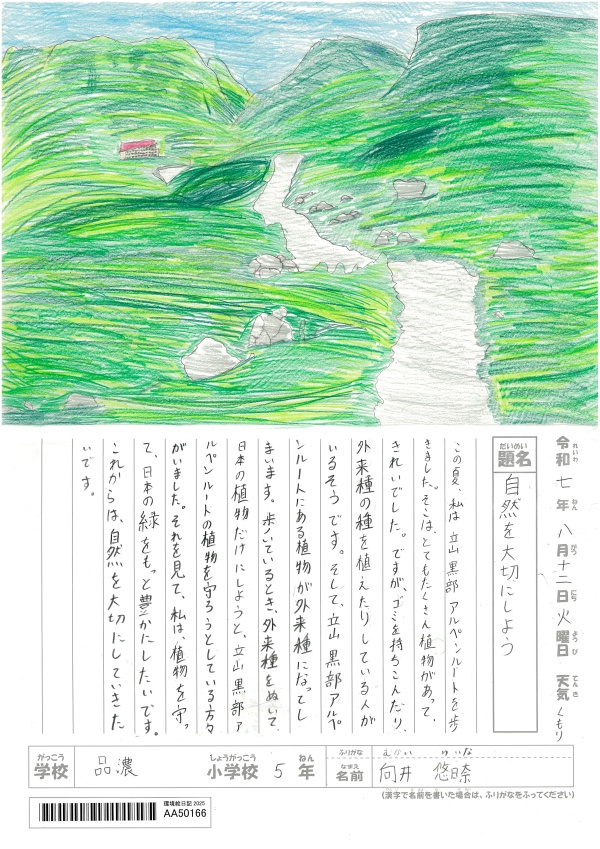 令和七年八月十二日火曜日 天気くもり
れいわ ねん がつ にち ようび てんき
だいめい
題名 自然を大切にしよう
この夏、私は立山黒部アルペンルートを歩
きました。そこは、とてもたくさん植物があって、
きれいでした。ですが、ゴミを持ちこんだり、
外来種の種を植えたりしている人が
いるそうです。そして、立山黒部アルペ
ンルートにある植物が外来種になってし
まいます。歩いているとき、外来種をぬいて、
日本の植物だけにしようと、立山黒部ア
ルペンルートの植物を守ろうとしている方々
がいました。それを見て、私は、植物を守っ
て、日本の緑をもっと豊かにしたいです。
これからは、自然を大切にしていきた
いです。
がっこう しょうがっこう ねん ふりがな
学校 品濃 小学校 5年
なまえ
名前 向井 悠
(漢字で名前を書いた場合は、ふりがなをふってください)
環境絵日記 2025
AA50166